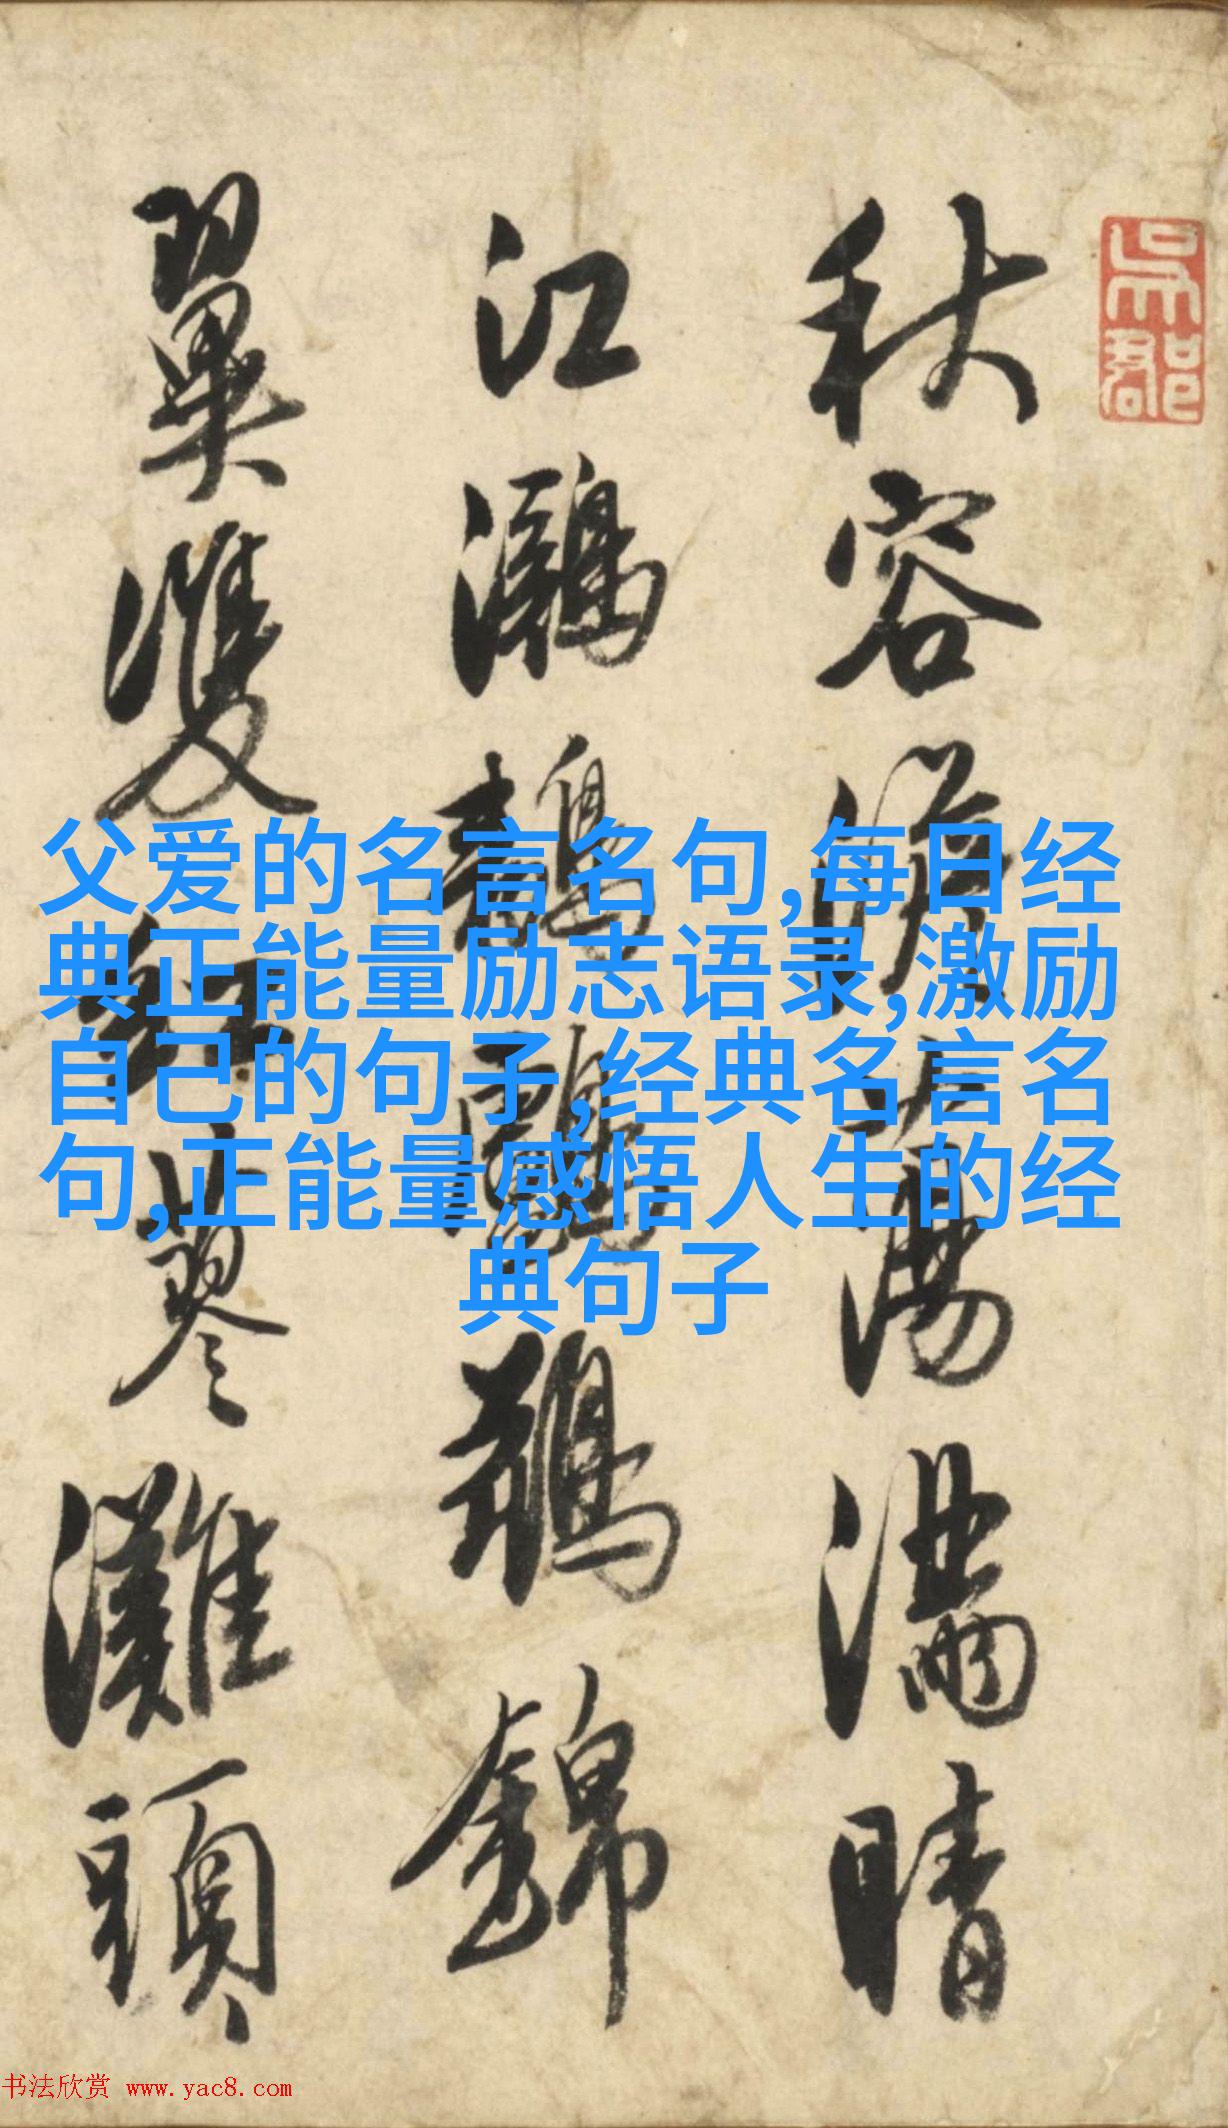 吳郡
秋容蕩滿晴
江鸂鶒錦
翼雙蓼灘頭
父爱的名言名句,每日经
典正能量励志语录,激励
自己的句子,经典名言名
句,正能量感悟人生的经
典句子
书法欣赏 www.yac8.com